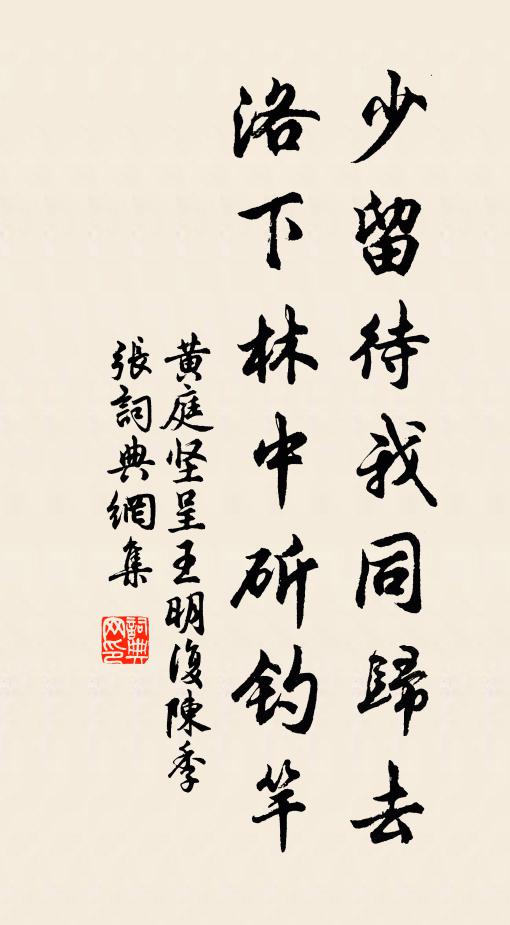 少留待我同歸去
洛下林中斫钓竿
黄庭坚呈王明復陳季
張詞典網集
詞典网印